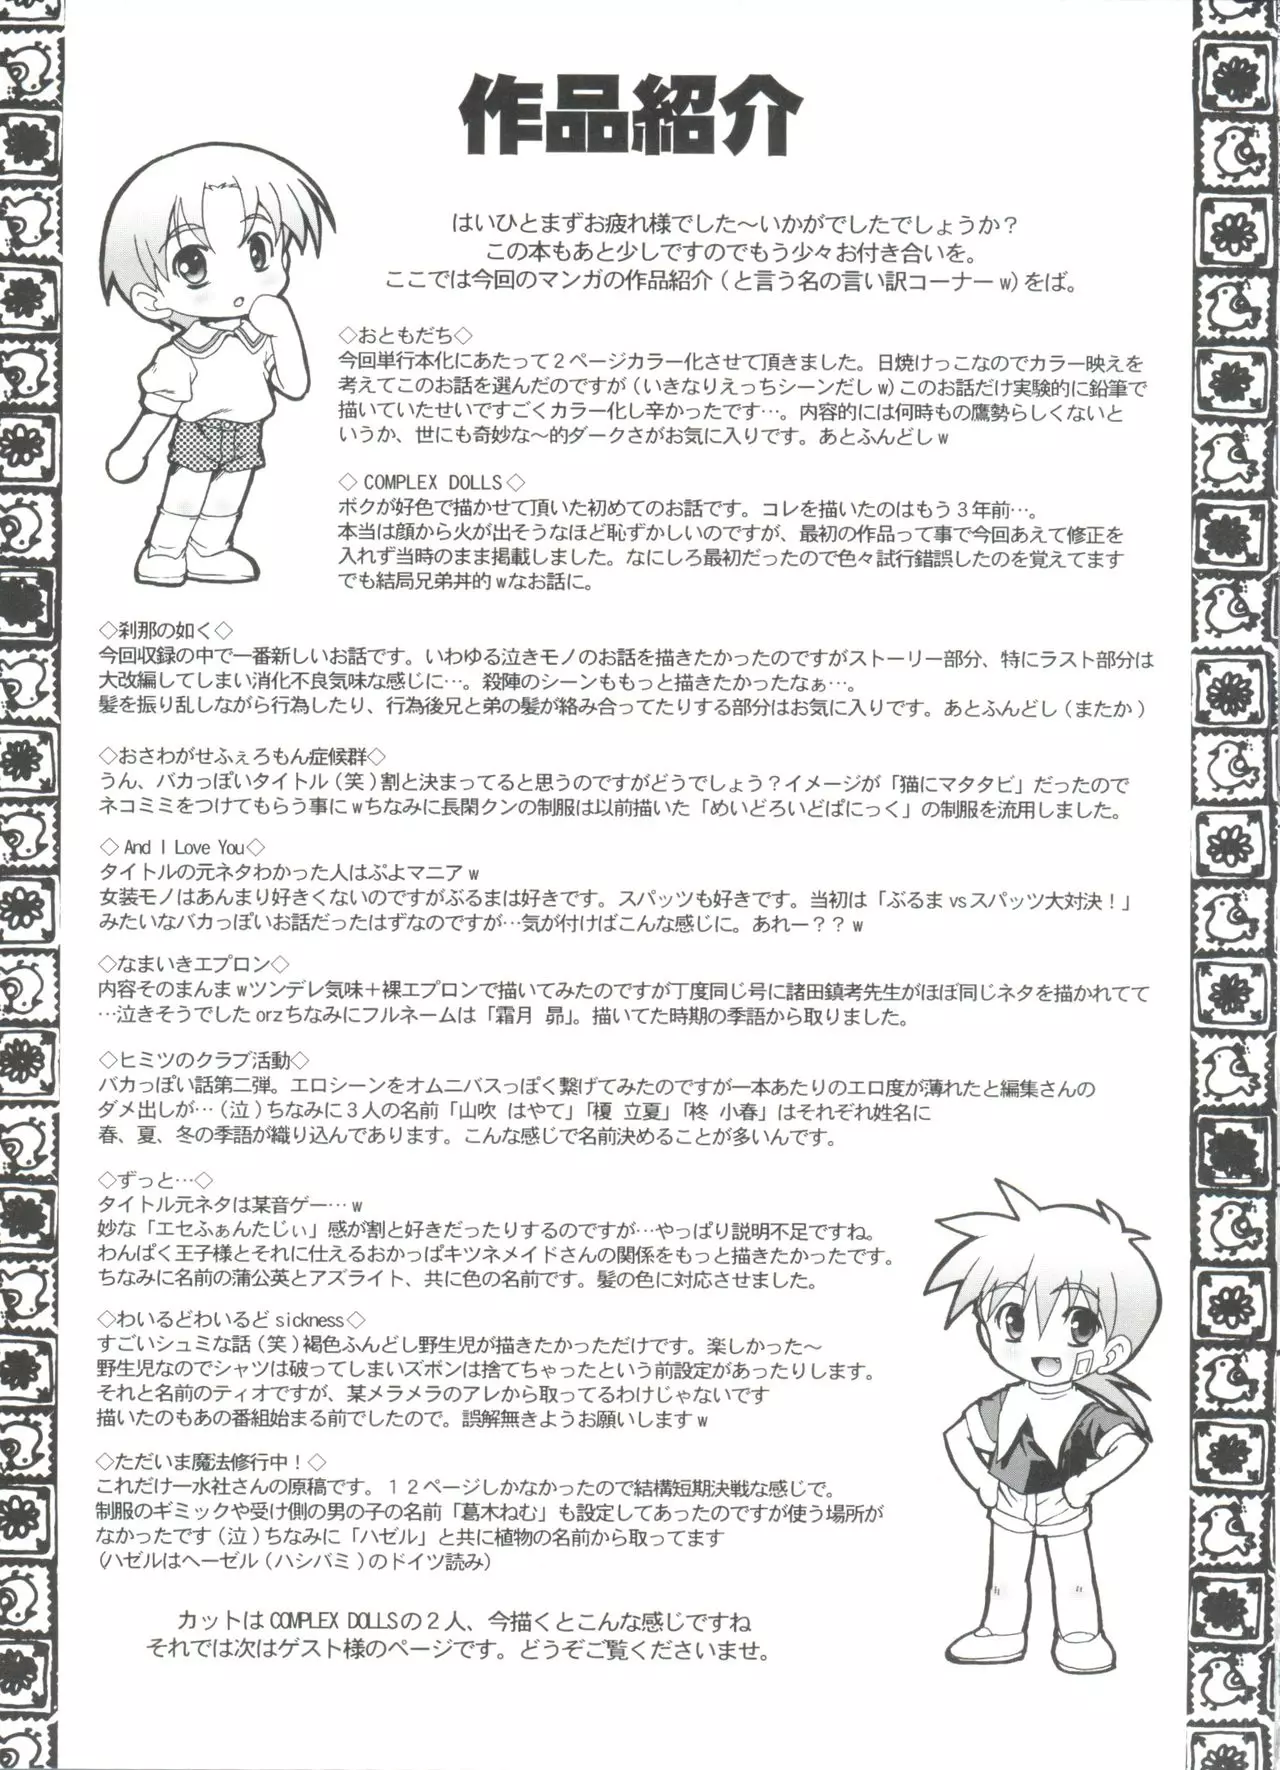 作品紹介
はいひとまずお疲れ様でした～いかがでしたでしょうか？
この本もあと少しですのでもう少々お付き合いを。
ここでは今回のマンガの作品紹介（と言う名の言い訳コーナーｗ)をば。
◇おともだち◇
今回単行本化にあたって２ページカラー化させて頂きました。日焼けっこなのでカラー映えを
考えてこのお話を選んだのですが（いきなりえっちシーンだしｗ)このお話だけ実験的に鉛筆で
描いていたせいですごくカラー化し辛かったです…。内容的には何時もの鷹勢らしくないと
いうか、世にも奇妙な～的ダークさがお気に入りです。あとふんどしｗ
◇ COMPLEX DOLLS◇
ボクが好色で描かせて頂いた初めてのお話です。コレを描いたのはもう３年前…。
本当は顔から火が出そうなほど恥ずかしいのですが、最初の作品って事で今回あえて修正を
入れず当時のまま掲載しました。なにしろ最初だったので色々試行錯誤したのを覚えてます
でも結局兄弟丼的ｗなお話に。
◇刹那の如く◇
今回収録の中で一番新しいお話です。いわゆる泣きモノのお話を描きたかったのですがストーリー部分、特にラスト部分は
大改編してしまい消化不良気味な感じに…。殺陣のシーンももっと描きたかったなぁ…。
髪を振り乱しながら行為したり、行為後兄と弟の髪が絡み合ってたりする部分はお気に入りです。あとふんどし（またか）
◇おさわがせふぇろもん症候群◇
うん、バカっぽいタイトル（笑）割と決まってると思うのですがどうでしょう？イメージが「猫にマタタビ」だったので
ネコミミをつけてもらう事にｗちなみに長閑クンの制服は以前描いた「めいどろいどぱにっく」の制服を流用しました。
◇ And I Love You◇
タイトルの元ネタわかった人はぷよマニアｗ
女装モノはあんまり好きくないのですがぶるまは好きです。スパッツも好きです。当初は「ぶるまvsスパッツ大対決！」
みたいなバカっぽいお話だったはずなのですが…気が付けばこんな感じに。あれー？？ｗ
◇なまいきエプロン◇
内容そのまんまｗツンデレ気味＋裸エプロンで描いてみたのですが丁度同じ号に諸田鎮考先生がほぼ同じネタを描かれてて
…泣きそうでしたorzちなみにフルネームは「霜月 昴」。描いてた時期の季語から取りました。
◇ヒミツのクラブ活動◇
バカっぽい話第二弾。エロシーンをオムニバスっぽく繋げてみたのですが一本あたりのエロ度が薄れたと編集さんの
ダメ出しが…（泣）ちなみに３人の名前「山吹 はやて」「榎 立夏」「柊 小春」はそれぞれ姓名に
春、夏、冬の季語が織り込んであります。こんな感じで名前決めることが多いんです。
◇ずっと…◇
タイトル元ネタは某音ゲー…ｗ
妙な「エセふぁんたじぃ」感が割と好きだったりするのですが…やっぱり説明不足ですね。
わんぱく王子様とそれに仕えるおかっぱキツネメイドさんの関係をもっと描きたかったです。
ちなみに名前の蒲公英とアズライト、共に色の名前です。髪の色に対応させました。
◇わいるどわいるど sickness◇
すごいシュミな話（笑）褐色ふんどし野生児が描きたかっただけです。楽しかった～
野生児なのでシャツは破ってしまいズボンは捨てちゃったという前設定があったりします。
それと名前のティオですが、某メラメラのアレから取ってるわけじゃないです
描いたのもあの番組始まる前でしたので。誤解無きようお願いしますｗ
◇ただいま魔法修行中！◇
これだけ一水社さんの原稿です。１２ページしかなかったので結構短期決戦な感じで。
制服のギミックや受け側の男の子の名前「葛木ねむ」も設定してあったのですが使う場所が
なかったです（泣）ちなみに「ハゼル」と共に植物の名前から取ってます
(ハゼルはヘーゼル（ハシバミ）のドイツ読み)
カットは COMPLEX DOLLSの２人、今描くとこんな感じですね
それでは次はゲスト様のページです。どうぞご覧くださいませ。